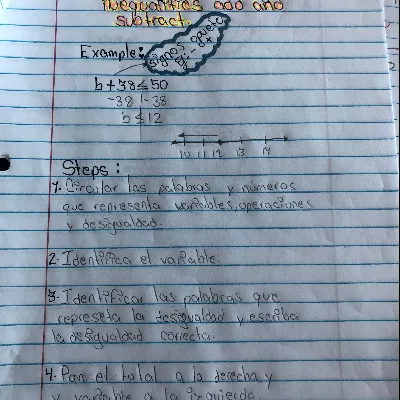 Inequalities add and
subtract.
Example:
signos opuesto
Ej: - a +
b + 38 ≤ 50
-38 | -38
b ≤ 12
10 11 12 13 14
Steps:
1. Circular las palabras y numeros
que representa variables, operaciones
y desigualdad.
2. Identifica el variable.
3. Identificar las palabras que
represeta la desigualdad y escriba
la desigualdad correcta.
4. Pon el total a la derecha y
y variable a la izquierda.